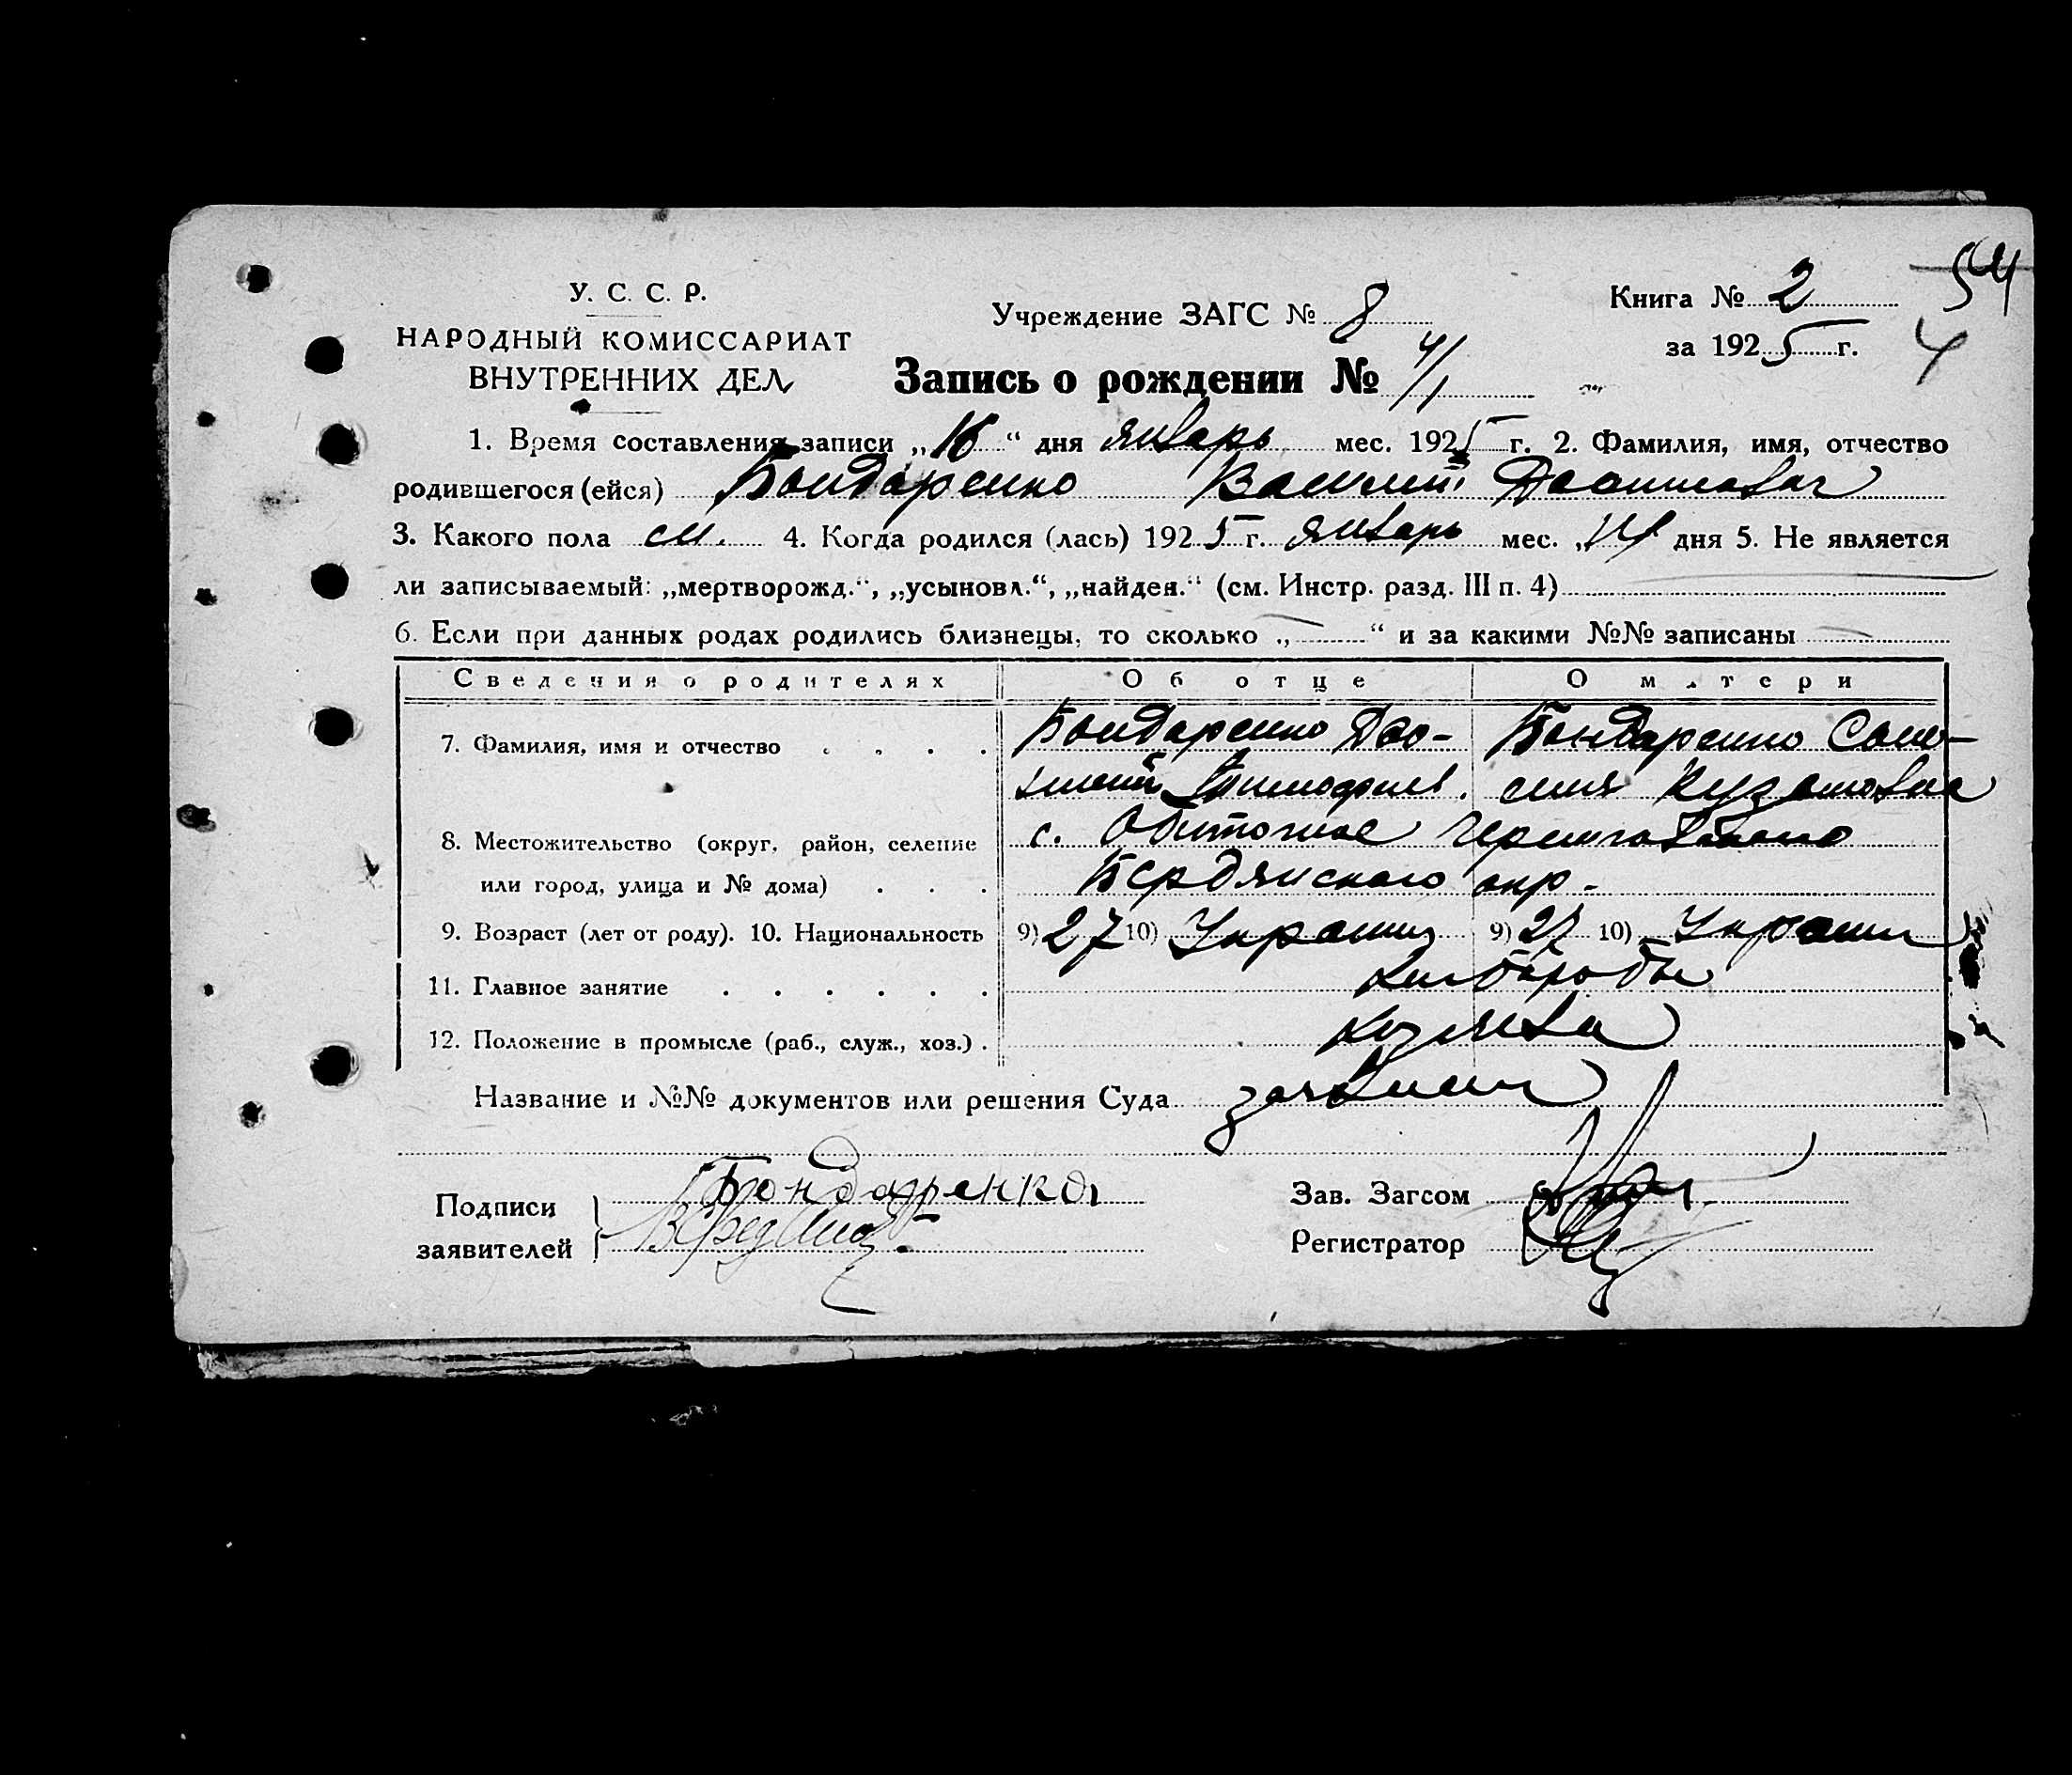 54
У. С. С. Р.
НАРОДНЫЙ КОМИССАРИАТ
ВНУТРЕННИХ ДЕЛ
Учреждение ЗАГС № 8
Книга № 2
за 1925 г.
4
Запись о рождении № 4/1
1. Время составления записи „16“ дня январь мес. 1925 г. 2. Фамилия, имя, отчество
родившегося (ейся) Бондаренко Василий
3. Какого пола м. 4. Когда родился (лась) 1925 г. январь мес. „14 дня 5. Не является
ли записываемый: „мертворожд.“, „усыновл.“, „найден.“ (см. Инстр. разд. III п. 4)
6. Если при данных родах родились близнецы, то сколько „—“ и за какими №№ записаны —
Сведения о родителях Об отце О матери
7. Фамилия, имя и отчество Бондаренко Бондаренко
Кузмовна
8. Местожительство (округ, район, селение с. Обиточное Черниговского
или город, улица и № дома) Бердянского окр.
9. Возраст (лет от роду). 10. Национальность 9) 27 10) Украинц 9) 27 10) Украин
11. Главное занятие хлебороб
12. Положение в промысле (раб., служ., хоз.) хозяева
Название и №№ документов или решения Суда заявлен
Подписи
заявителей
Бондаренко
Зав. Загсом
Регистратор